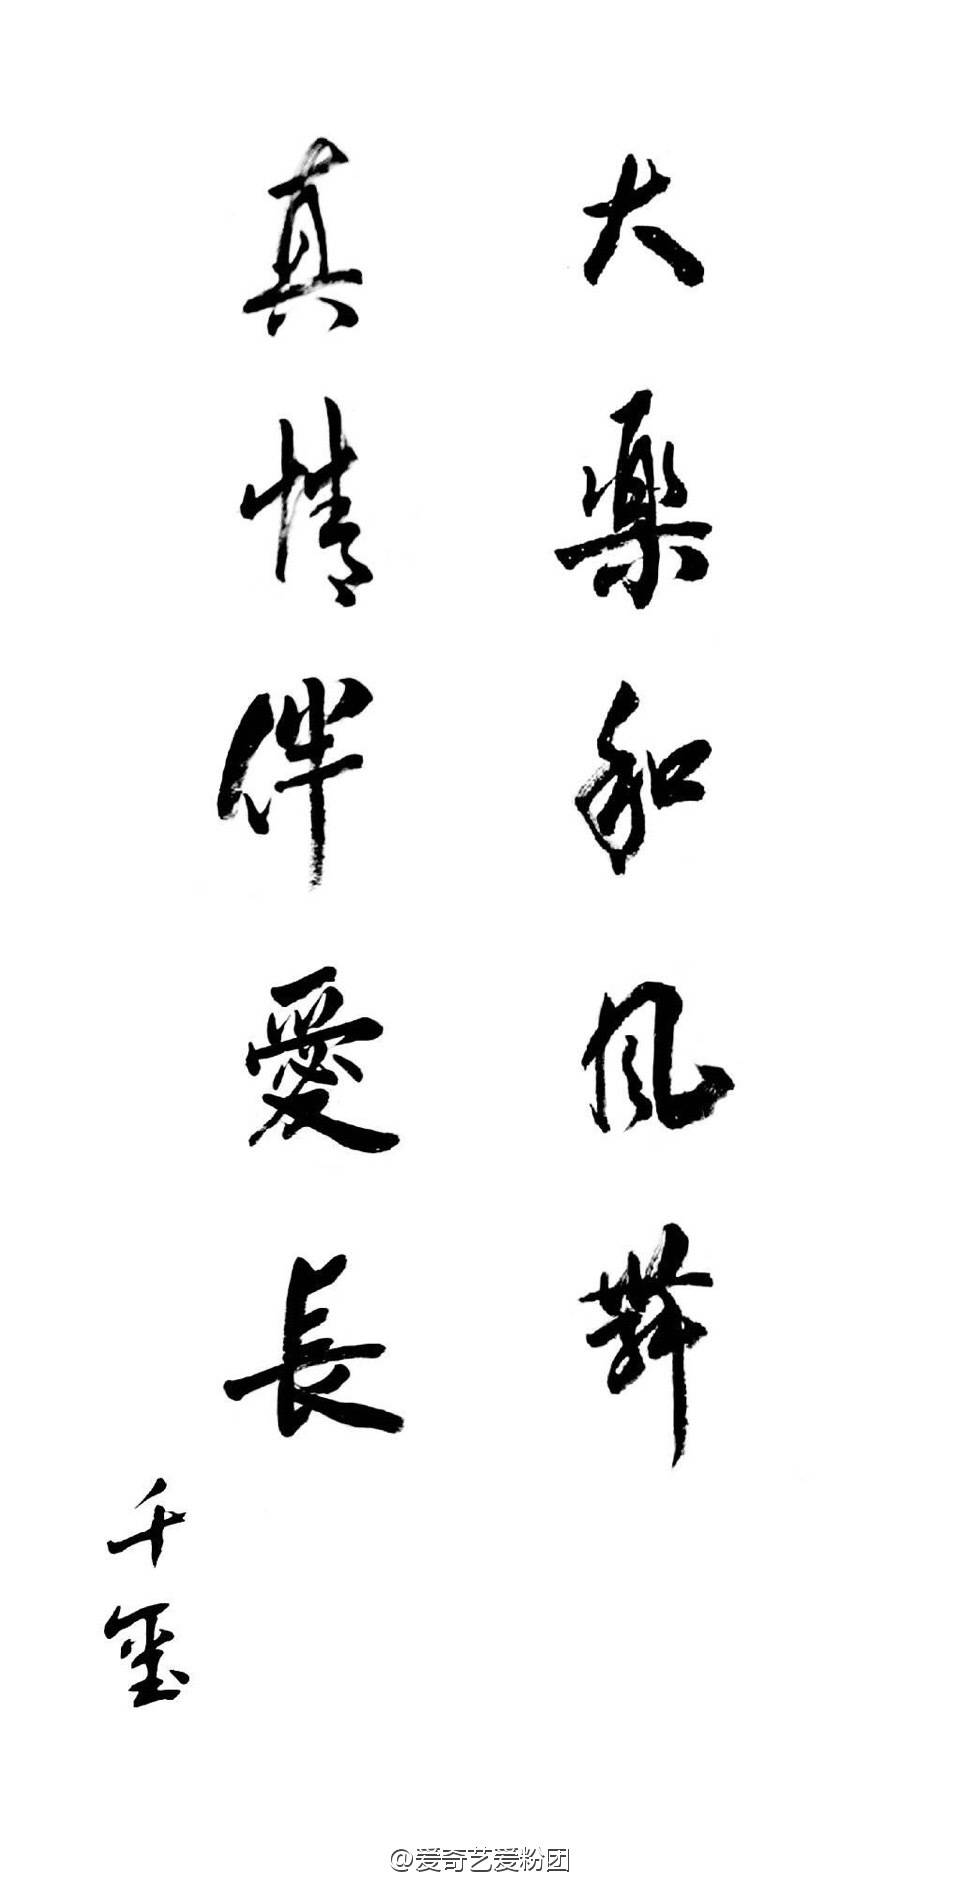 大樂和風舞
真情伴愛長
千璽
@爱奇艺爱粉团